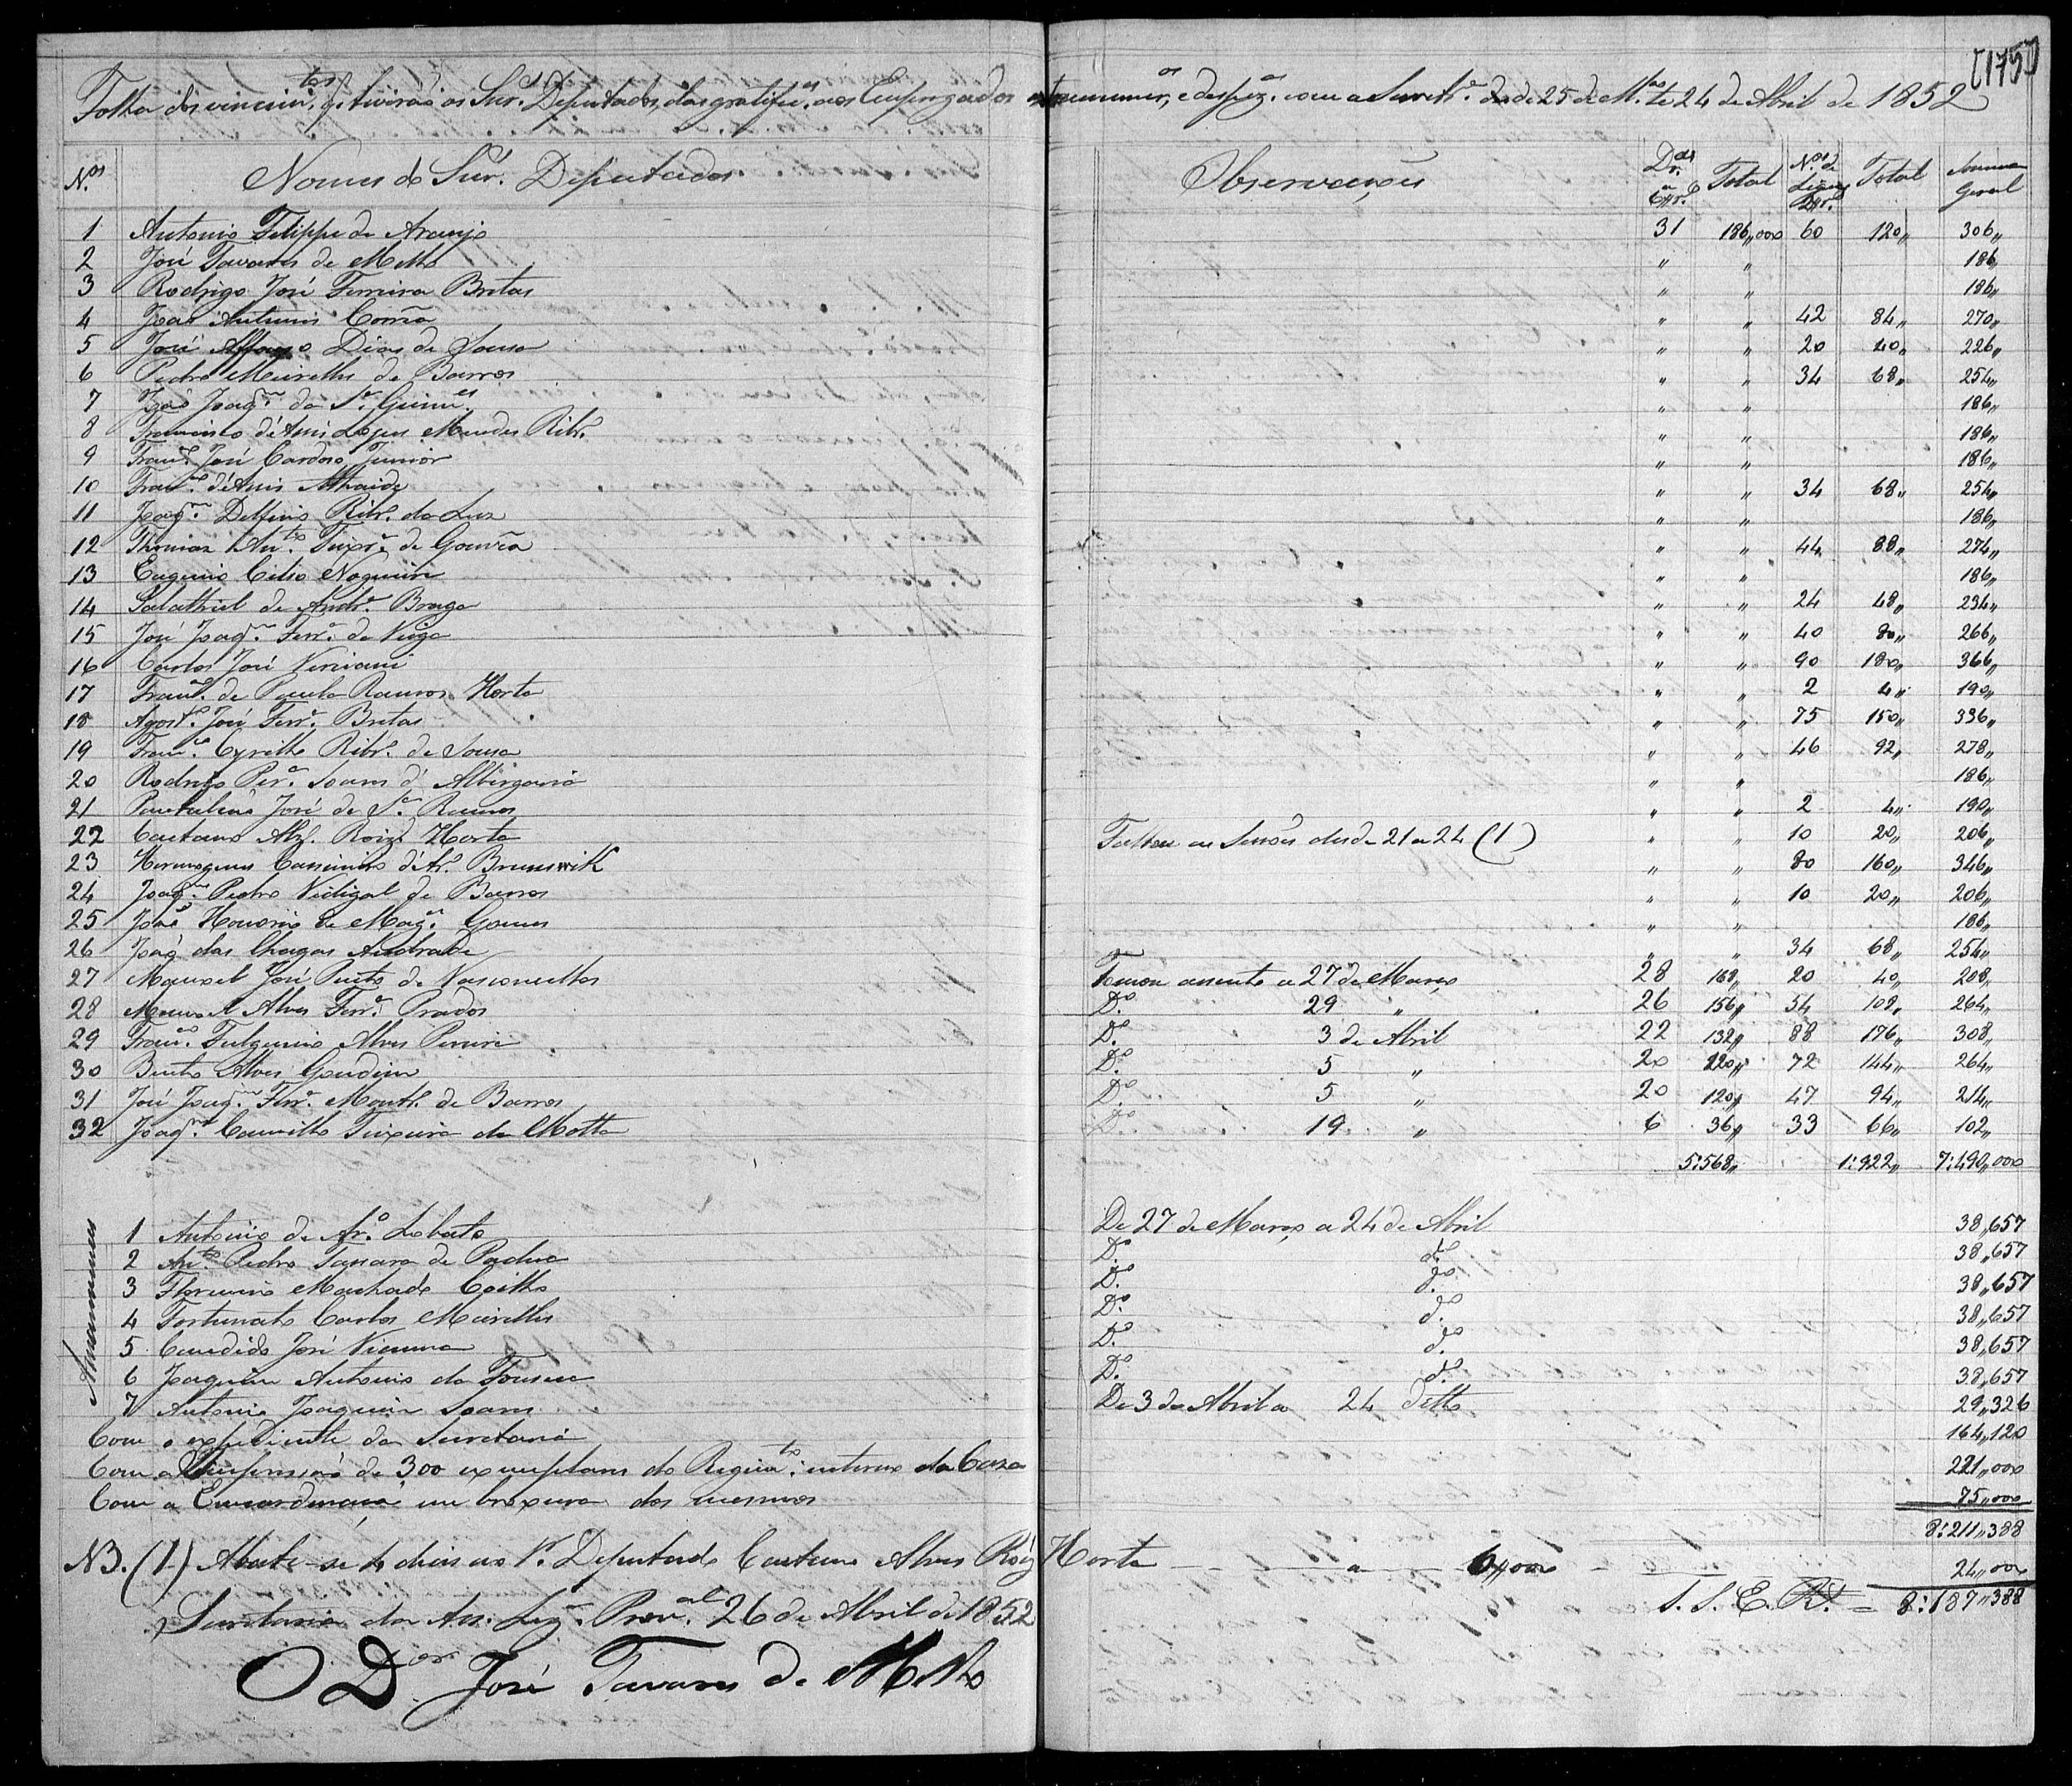 [175]
Folha dos vencim.tos q. tiverão os Snr.es Deputados, das gratific.es aos Empregados amanuenses, e despez.as com a Secret.a desde 25 de M.ço te 24 de Abril de 1852
N.os Nomes dos Snr.es Deputados Observações D.as a 6$r.s Total N.os de Legoas 2$r.s Total Summa Geral
1 Antonio Felippe de Araujo 31 186,,000 60 120,, 306,,
2 José Tavares de Mello ,, ,, 186,,
3 Rodrigo José Ferreira Bretas ,, ,, 186,,
4 João Antunes Corrêa ,, ,, 42 84,, 270,,
5 José Affonso Dias de Sousa ,, ,, 20 40,, 226,,
6 Pedro Meirelles de Barros ,, ,, 34 68,, 254,,
7 João Joaq.m da S.a Guim.es ,, ,, 186,,
8 Francisco d'Assis Lopes Mendes Ribr.o ,, ,, 186,,
9 Fran.co José Cardoso Junior ,, ,, 186,,
10 Fran.co d'Assis Athaide ,, ,, 34 68,, 254,,
11 Joaq.m Delfino Ribr.o da Luz ,, ,, 186,,
12 Thomaz An.to Teixr.a de Gouvêa ,, ,, 44 88,, 274,,
13 Eugenio Celso Nogueira ,, ,, 186,,
14 Salathiel de Andr.e Braga ,, ,, 24 48,, 234,,
15 José Joaq.m Ferr.a da Veiga ,, ,, 40 80,, 266,,
16 Carlos José Versiani ,, ,, 90 180,, 366,,
17 Fran.co de Paula Ramos Horta ,, ,, 2 4,, 190,,
18 Agost.o José Ferr.a Bretas ,, ,, 75 150,, 336,,
19 Fran.co Cyrillo Ribr.o de Sousa ,, ,, 46 92,, 278,,
20 Rodrigo Per.a Soares d'Albergaria ,, ,, 186,,
21 Pantaleão José da S.a Ramos ,, ,, 2 4,, 190,,
22 Caetano Alz. Roiz Horta Faltou as Sessões desde 21 a 24 (1) ,, ,, 10 20,, 206,,
23 Hermogenes Cassimiro d'Ar.o Brunswik ,, ,, 80 160,, 346,,
24 Joaq.m Pedro Vidigal de Barros ,, ,, 10 20,, 206,,
25 João Honorio de Mag.es Gomes ,, ,, 186,,
26 João das Chagas Andrade ,, ,, 34 68,, 254,,
27 Manoel José Pinto de Vasconcellos Tomou assento a 27 de Março 28 168,, 20 40,, 208,,
28 Manoel Alves Ferr.a Prados D.o 29 ,, 26 156,, 54 108,, 264,,
29 Fran.co Fulgencio Alves Pereira D.o 3 de Abril 22 132,, 88 176,, 308,,
30 Bento Alves Gondim D.o 5 ,, 20 120,, 72 144,, 264,,
31 José Joaq.m Ferr.a Mont.o de Barros D.o 5 ,, 20 120,, 47 94,, 214,,
32 Joaq.m Camillo Teixeira da Motta D.o 19 ,, 6 36,, 33 66,, 102,,
5:568,, 1:922,, 7:490,,000
Amanuenses
1 Antonio de Ar.o Lobato De 27 de Março a 24 de Abril 38,,657
2 An.to Pedro Sassara de Padua D.o d.o 38,,657
3 Florencio Machado Coelho D.o d.o 38,,657
4 Fortunato Carlos Meirelles D.o d.o 38,,657
5 Candido José Vianna D.o d.o 38,,657
6 Joaquim Antonio da Fonseca D.o d.o 38,,657
7 Antonio Joaquim Soares De 3 de Abril a 24 ditto 29,,326
Com o expediente da Secretaria 164,,120
Com a Impressão de 300 exemplares do Regim.to interno da Casa 221,,000
Com a Encardenação em broxura dos mesmos 75,,000
8:211,,388
NB. (1) Abate-se 4 dias ao Sr. Deputado Caetano Alves Roiz Horta a 6,,000 24,,000
S. S. E. R. = 8:187,,388
Secretaria da Ass. Leg. Prov.al 26 de Abril de 1852
O D.or José Tavares de Mello